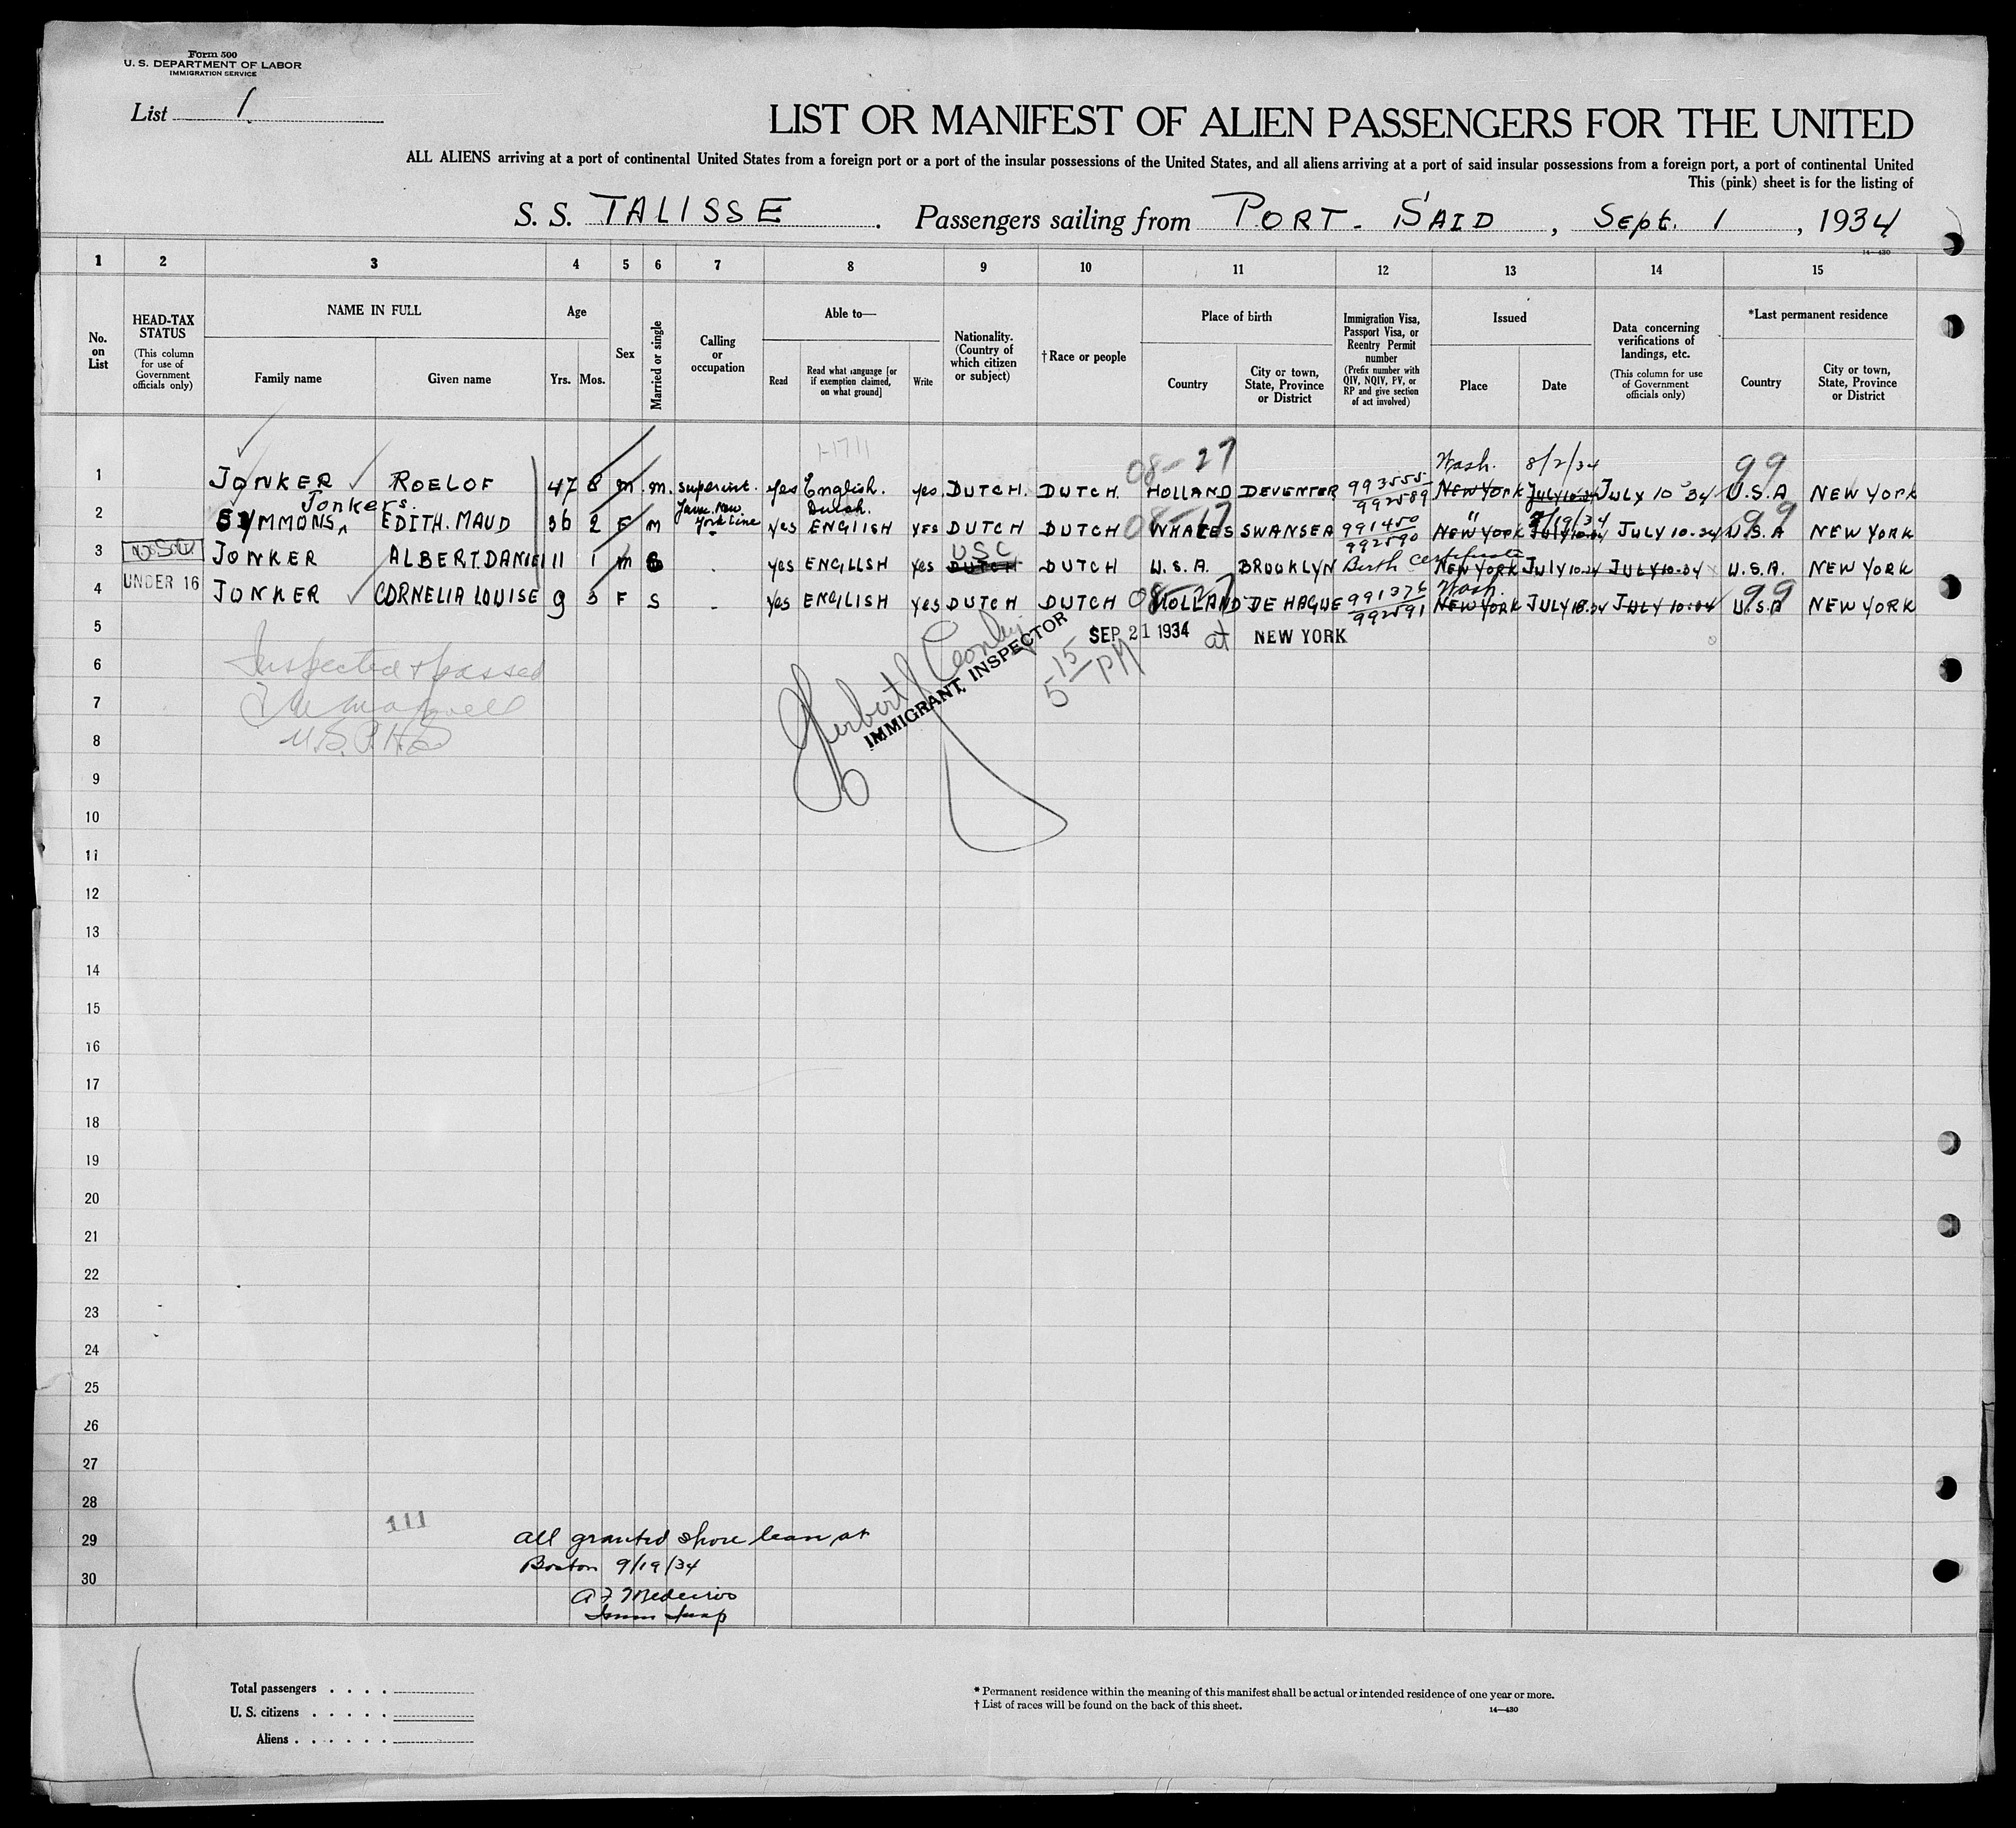 Form 500
U. S. DEPARTMENT OF LABOR
IMMIGRATION SERVICE
List 1
LIST OR MANIFEST OF ALIEN PASSENGERS FOR THE UNITED
ALL ALIENS arriving at a port of continental United States from a foreign port or a port of the insular possessions of the United States, and all aliens arriving at a port of said insular possessions from a foreign port, a port of continental United
This (pink) sheet is for the listing of
S. S. TALISSE. Passengers sailing from PORT-SAID, Sept. 1, 1934
14—430
1 2 3 4 5 6 7 8 9 10 11 12 13 14 15
No. on List
HEAD-TAX STATUS (This column for use of Government officials only)
NAME IN FULL
Family name Given name
Age
Yrs. Mos.
Sex
Married or single
Calling or occupation
Able to—
Read Read what language [or if exemption claimed, on what ground] Write
Nationality. (Country of which citizen or subject)
†Race or people
Place of birth
Country City or town, State, Province or District
Immigration Visa, Passport Visa, or Reentry Permit number (Prefix number with QIV, NQIV, PV, or RP and give section of act involved)
Issued
Place Date
Data concerning verifications of landings, etc. (This column for use of Government officials only)
*Last permanent residence
Country City or town, State, Province or District
1-1711 08-27 Wash. 8/2/34 99
1 JONKER ROELOF 47 8 m. m. superint. yes English. yes. DUTCH. DUTCH. HOLLAND DEVENTER 993555 992589 NEW YORK JULY 10-34 JULY 10 34 U.S.A NEW YORK
Jonkers. Java. New York Line Dutch.
2 SYMMONS EDITH. MAUD 36 2 F M yes ENGLISH YES DUTCH DUTCH 08-17 WHALES SWANSEA 991450 992590 NEW YORK " 7/19/34 JULY 10-34 JULY 10-34 99 U.S.A NEW YORK
3 JONKER ALBERT.DANIEL 11 1 m S - yes ENGLISH yes USC DUTCH DUTCH U.S.A. BROOKLYN Birth Certificate NEW YORK JULY 10-34 JULY 10-34 U.S.A. NEW YORK
UNDER 16
4 JONKER CORNELIA LOUISE 9 3 F S - yes ENGLISH yes DUTCH DUTCH 08-27 HOLLAND DE HAGUE 991376 992591 Wash. NEW YORK JULY 18-34 JULY 10-34 99 U.S.A NEW YORK
5 SEP 21 1934 at NEW YORK
Inspected & passed
U.S.P.H.S
IMMIGRANT INSPECTOR
5 15 PM
6
7
8
9
10
11
12
13
14
15
16
17
18
19
20
21
22
23
24
25
26
27
28
111
29 all granted shore leave at
Boston 9/19/34
30
A F Medeiros
Imm Insp
Total passengers
U. S. citizens
Aliens
* Permanent residence within the meaning of this manifest shall be actual or intended residence of one year or more.
† List of races will be found on the back of this sheet.
14—430